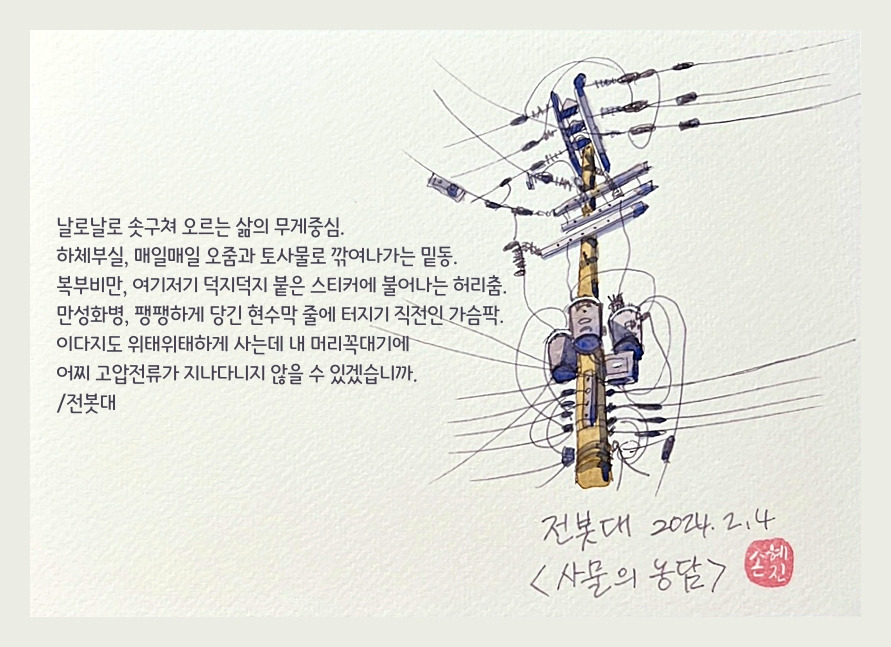 날로날로 솟구쳐 오르는 삶의 무게중심.
하체부실, 매일매일 오줌과 토사물로 깎여나가는 밑동.
복부비만, 여기저기 덕지덕지 붙은 스티커에 불어나는 허리춤.
만성화병, 팽팽하게 당긴 현수막 줄에 터지기 직전인 가슴팍.
이다지도 위태위태하게 사는데 내 머리꼭대기에
어찌 고압전류가 지나다니지 않을 수 있겠습니까.
/전봇대
전봇대 2024. 2. 4
<사물의 농담>
손혜진